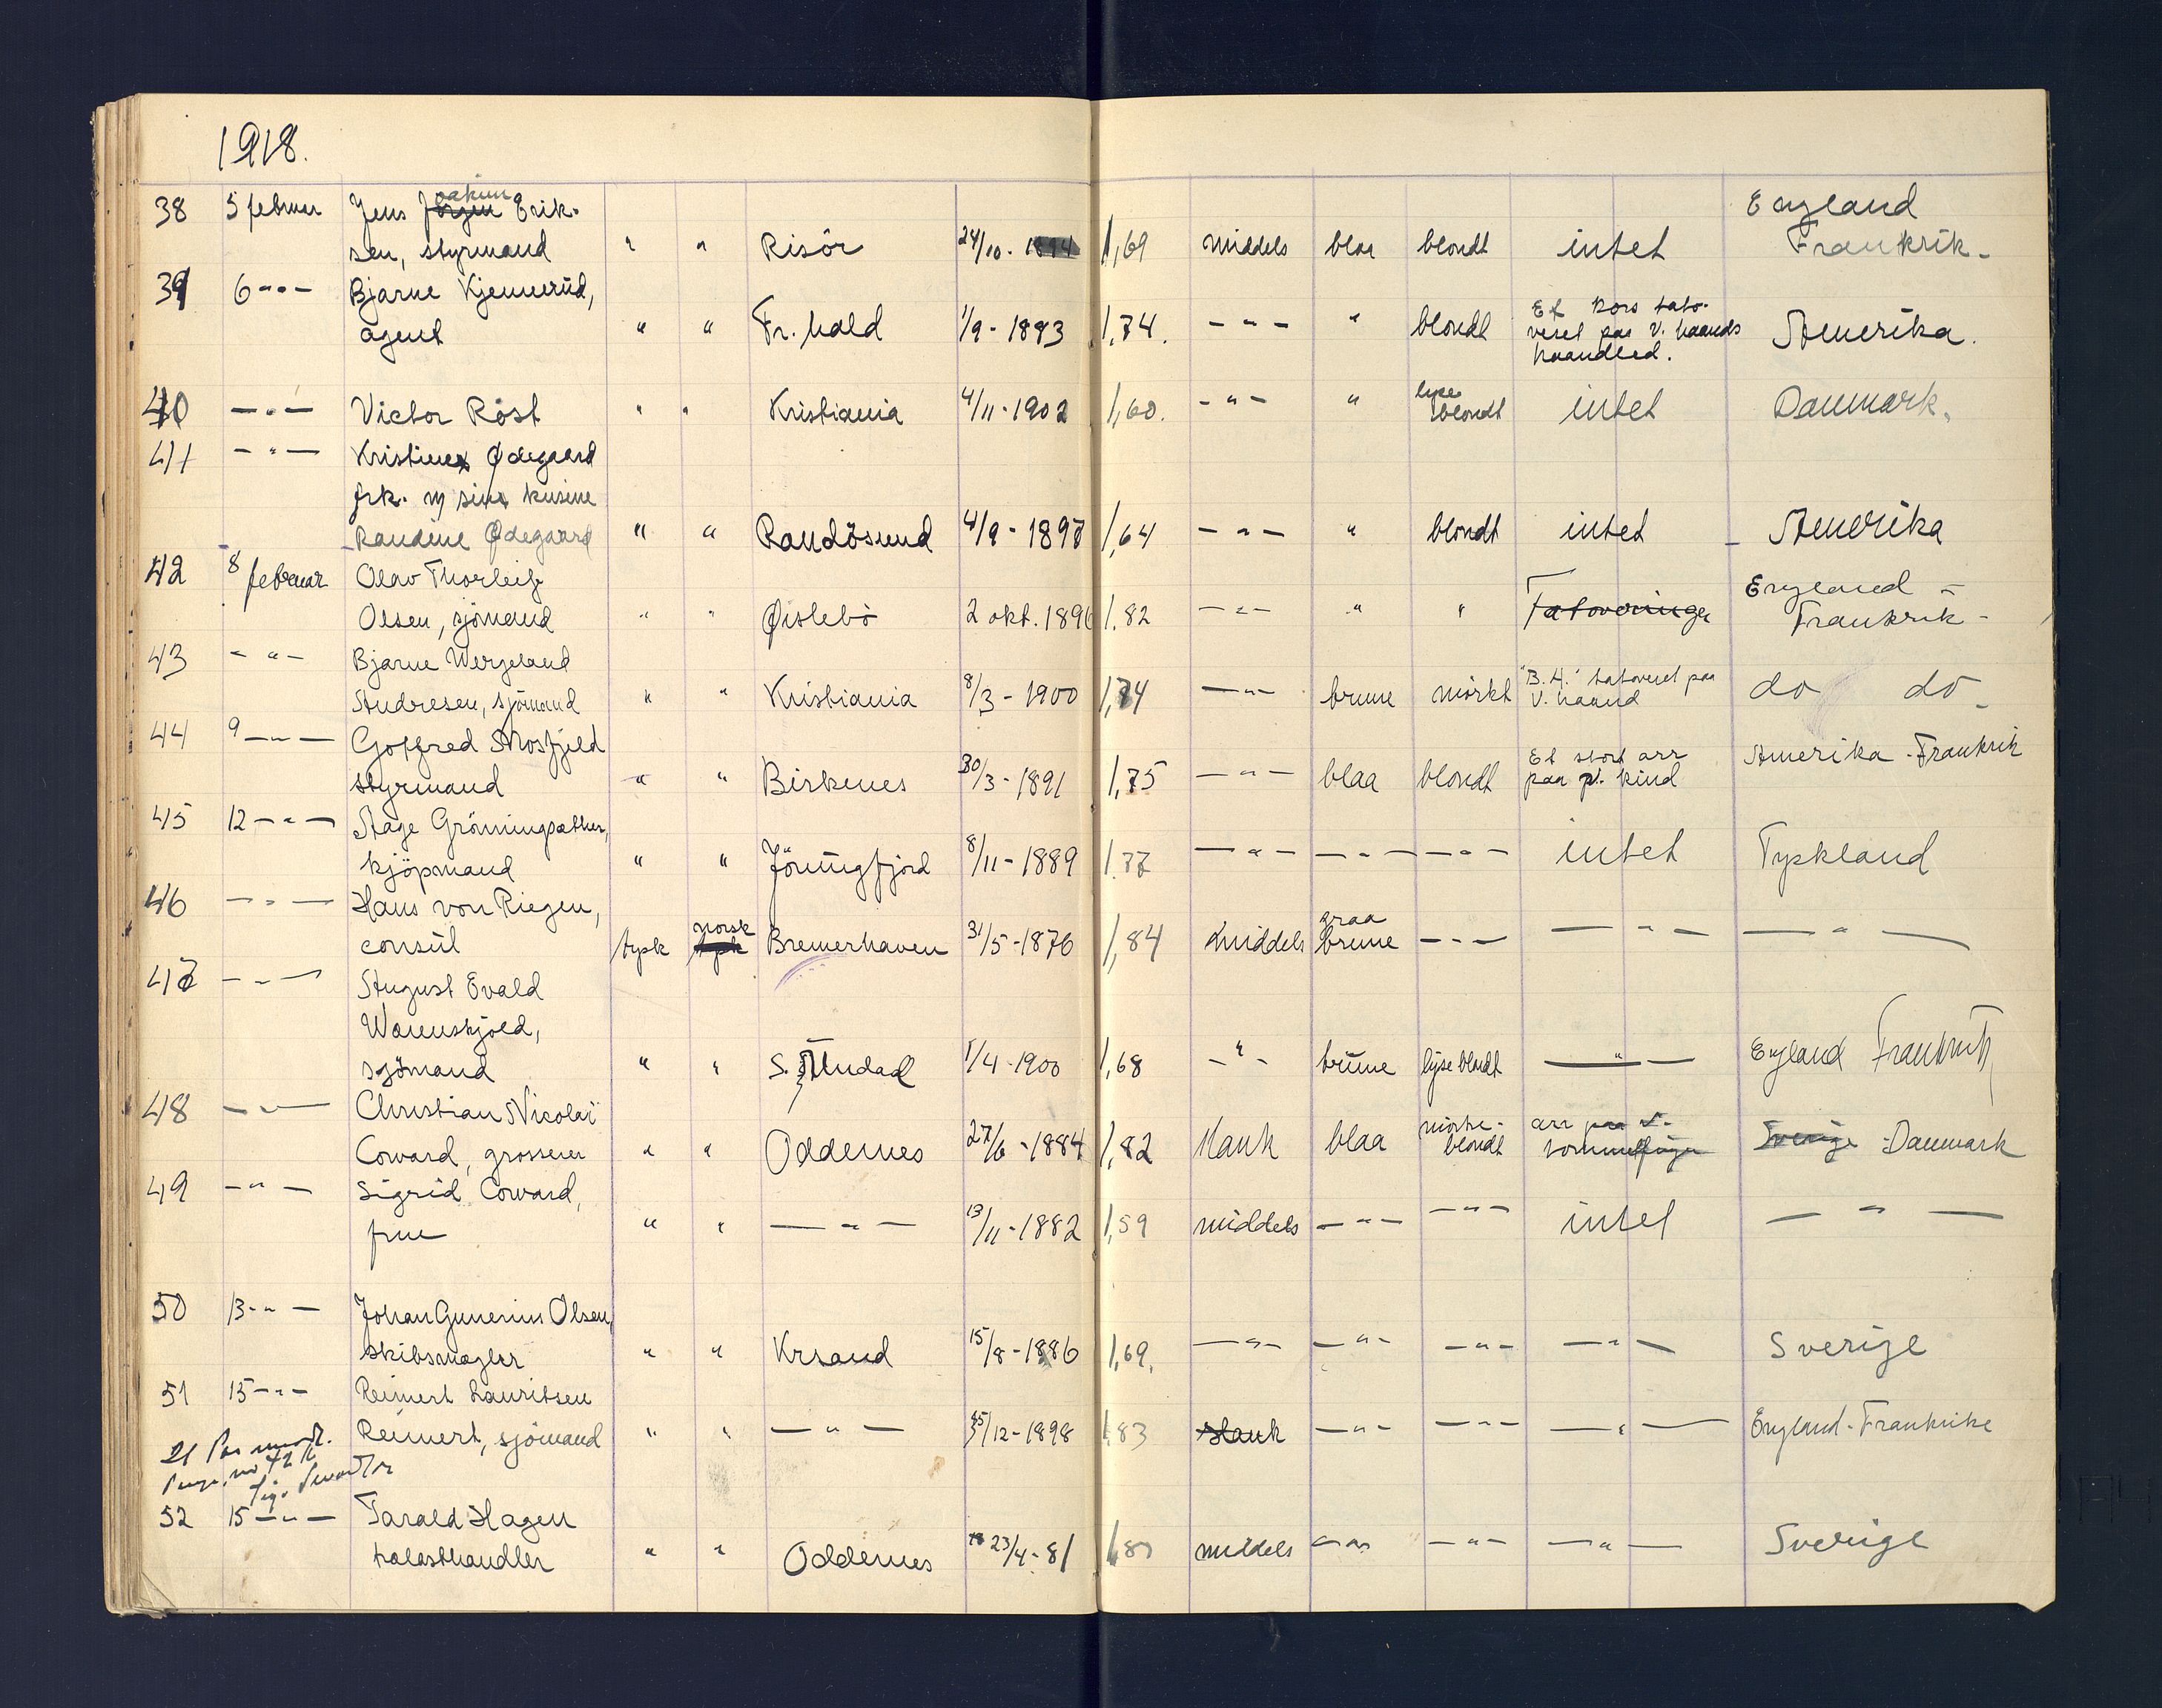 1918.
38 5 februar Jens Joakim Erik-
England
sen, styrmand " " Risör 24/10 - 1,69 middels blaa blondt intet Frankrik -
39 6 - " - Bjarne Kjennerud,
agent " " Fr. hald 1/9 - 1883 1,74. - " - " blondt Et kors tato-
veret paa v. haands
haandled. Amerika.
40 - " - Victor Röst " " Kristiania 4/11 - 1902 1,60. - " - " lyse
blondt intet Danmark.
41 - " - Kristine Ødegaard
frk. m sin kusine
Randine Ødegaard " " Randösund 4/9 - 1897 1,64 - " - " blondt intet Amerika
42 8 februar Olav Thorleif
England -
Olsen, sjömand " " Øislebö 2 okt. 1896 1,82 - " - " " Tatoveringer Frankrik -
43 - " - Bjarne Wergeland
Andresen, sjömand " " Kristiania 8/3 - 1900 1,74 - " - brune mörkt "B. H." tatoveret paa
v. haand do do -
44 9 - " - Goffred Mosfjeld
styrmand " " Birkenes 30/3 - 1891 1,75 - " - blaa blondt Et stort arr
paa v. kind Amerika - Frankrik
45 12 - " - Aage Grönningsæther,
kjöpmand " " Jöringfjord 8/11 - 1889 1.77 - " - - " - - " - intet Tyskland
46 - " - Hans von Riegen,
consul tysk norsk Bremerhaven 31/5 - 1876 1,84 middels graa
brune - " - - " - - " -
47 - " - August Evald
Warenskjold,
sjömand " " S. Undal 1/4 - 1900 1,68 - " - brune lyse blondt - " - England Frankrik
48 - " - Christian Nicolai
Coward, grosserer " " Oddernes 27/6 - 1884 1,82 slank blaa mörke-
blondt arr paa v.
tommelfinger Sverige - Danmark
49 - " - Sigrid Coward,
frue " " - " - 13/11 - 1882 1,59 middels - " - - " - intet - " -
50 13 - " - Johan Gunerius Olsen,
skibsmægler " " Krsand 15/8 - 1886 1,69. - " - - " - - " - - " - Sverige
51 15 - " - Reinert Lauritsen
Reinert, sjömand " " - " - /12 - 1898 1.83 slank - " - - " - - " - England - Frankrike
52 15 - " - Tarald Hagen
trælasthandler " " Oddernes 23/4 - 81 middels - " - - " - - " - Sverige